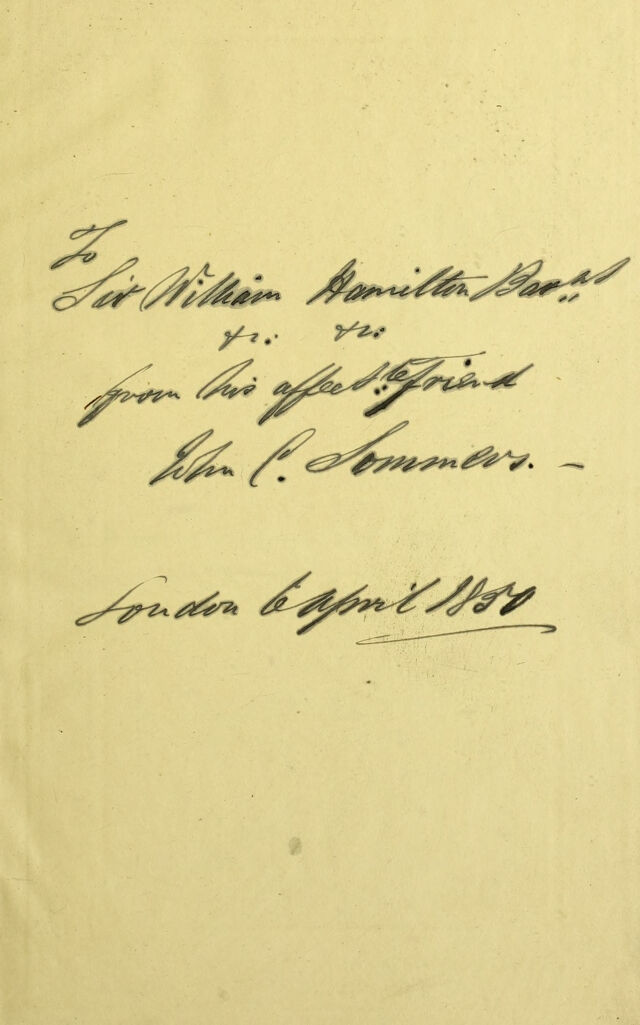 To
Sir William Hamilton Baronet
&c: &c:
from his affect:te friend
John C. Sommers. —
London 6 April 1850